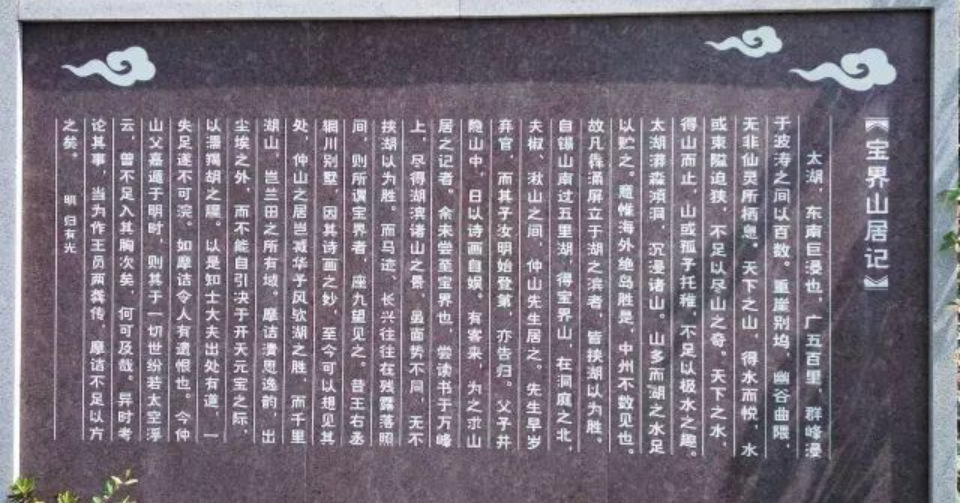 《宝界山居记》
太湖，东南巨浸也，广五百里，群峰浸
于波涛之间以百数。重崖别坞，幽谷曲隈，
无非仙灵所栖息。天下之山，得水而悦，水
或束隘迫狭，不足以尽山之奇。天下之水，
得山而止，山或孤孑托稚，不足以极水之趣。
太湖漭淼澒洞，沉浸诸山。山多而湖之水足
以贮之。意惟海外绝岛胜是，中州不数见也。
故凡犇涌屏立于湖之滨者，皆挟湖以为胜。
自锡山南过五里湖，得宝界山，在洞庭之北，
夫椒、湫山之间，仲山先生居之。先生早岁
弃官，而其子汝明始登第，亦告归。父子并
隐山中，日以诗画自娱。有客来，为之求山
居之记者。余未尝至宝界也，尝读书于万峰
上，尽得湖滨诸山之景，虽面势不同，无不
挟湖以为胜。而马迹、长兴往往在残露落照
间，则所谓宝界者，座九望见之。昔王右丞
辋川别墅，因其诗画之妙，至今可以想见其
处，仲山之居岂减华予风欤湖之胜，而千里
湖山，岂兰田之所有域。摩诘溃思逸韵，出
尘埃之外，而不能自引决于开天元宝之际，
以濡羯胡之腥。以是知士大夫出处有道，一
失足遂不可浣。如摩诘令人有遗恨也。今仲
山父嘉遁于明时，则其于一切世纷若太空浮
云，曾不足入其胸次矣，何可及哉。异时考
论其事，当为作王员两龚传，摩诘不足以方
之矣。 明 归有光